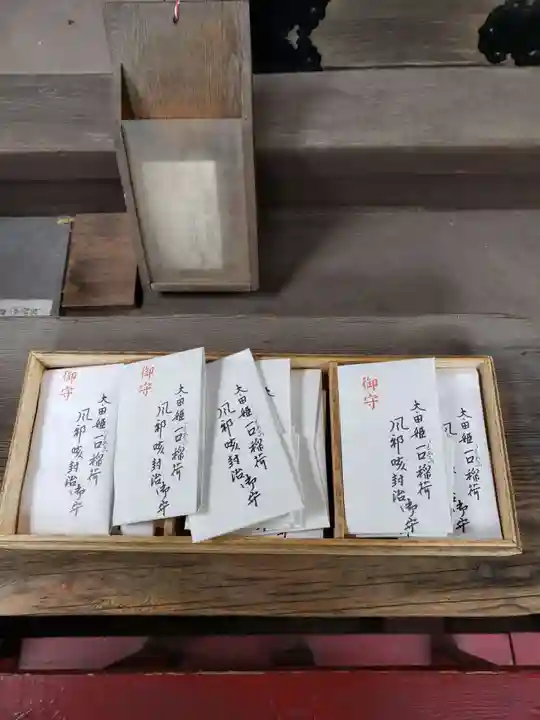 御守
太田姫一口稲荷
風邪咳封治御守
御守
太田姫一口稲荷
風邪咳封治御守
太田姫一口稲荷
風邪咳封治御守
御守
太田姫一口稲荷
風邪咳封治御守
太田姫一口稲荷